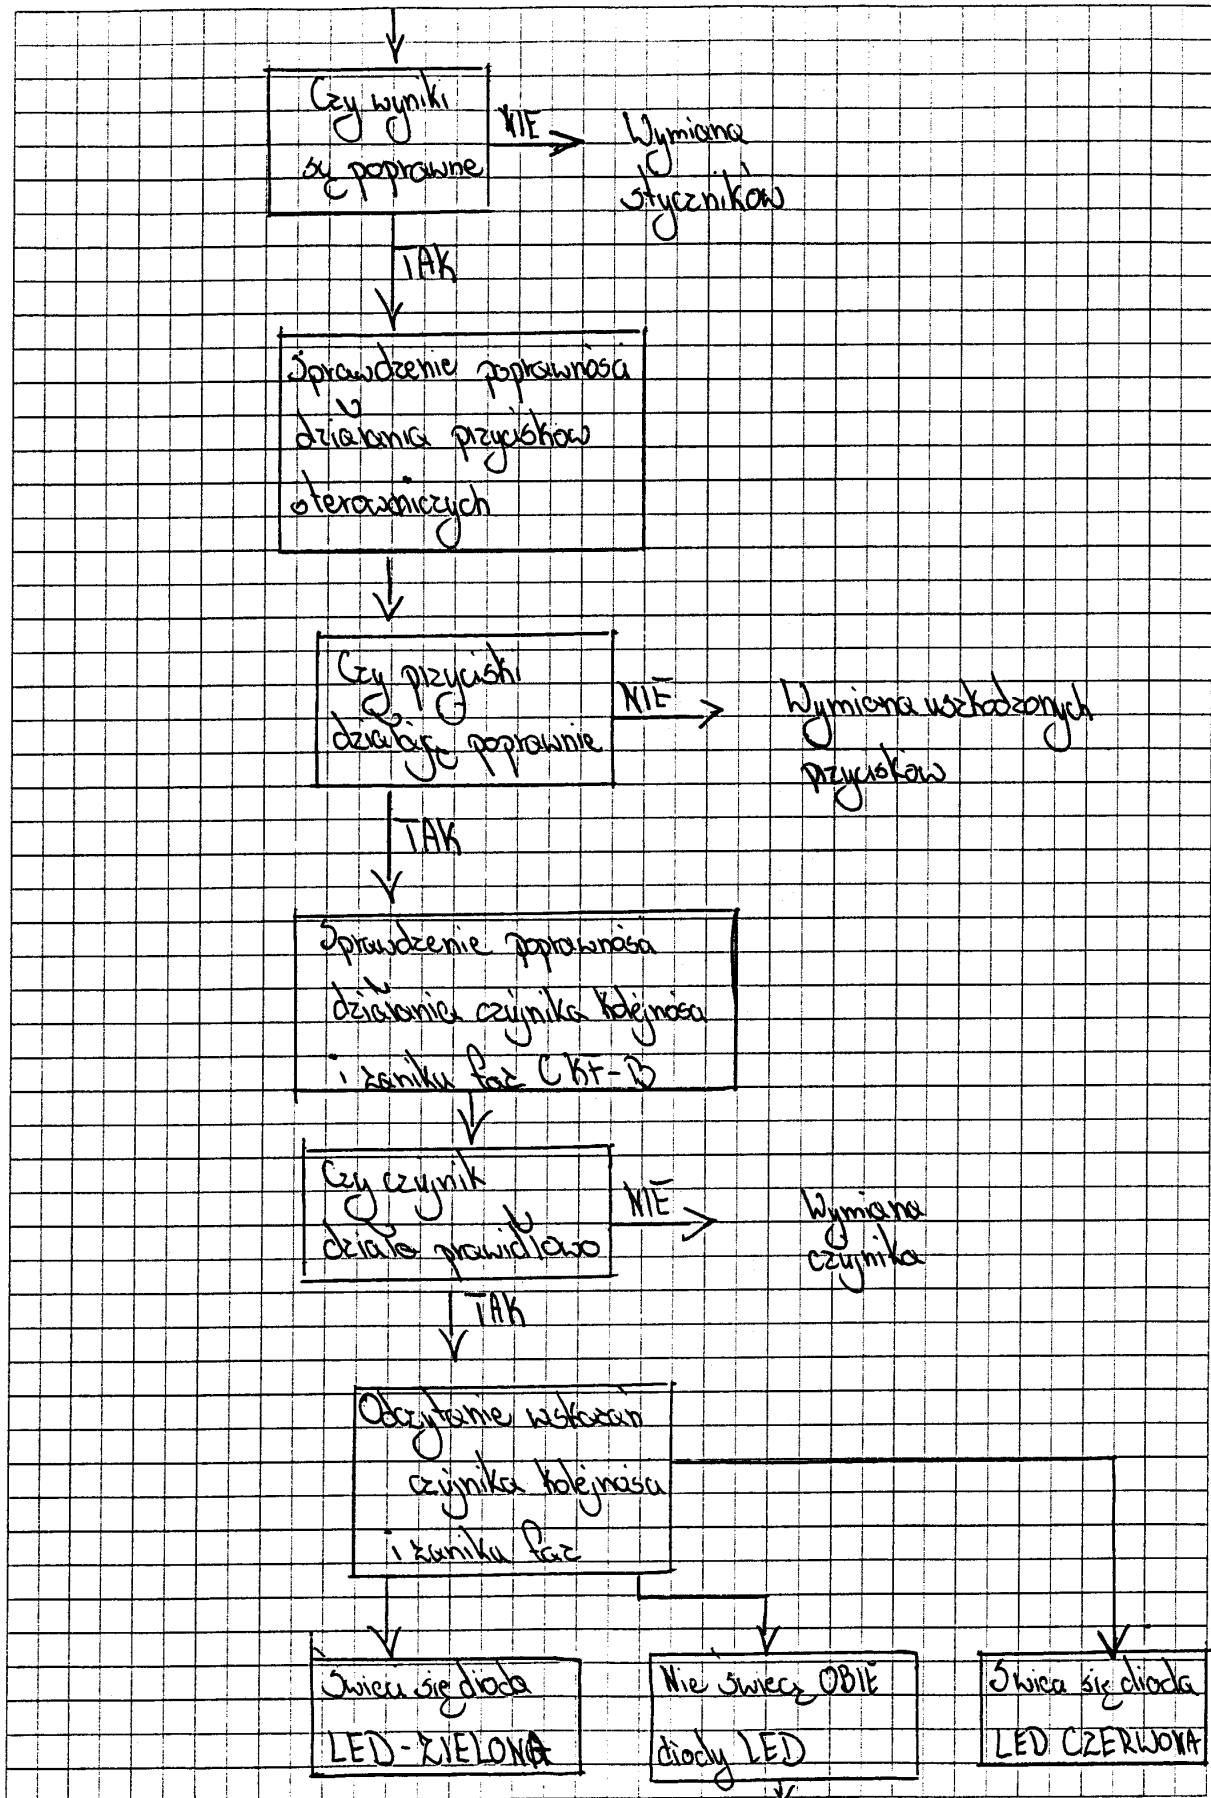 Czy wyniki
są poprawne
NIE
Wymiana
styczników
TAK
Sprawdzenie poprawności
działania przycisków
sterowniczych
Czy przyciski
działają poprawnie
NIE
Wymiana uszkodzonych
przycisków
TAK
Sprawdzenie poprawności
działania czujnika kolejności
i zaniku faz CKF-B
Czy czujnik
działa prawidłowo
NIE
Wymiana
czujnika
TAK
Odczytanie wskazań
czujnika kolejności
i zaniku faz
Świeci się dioda
LED-ZIELONA
Nie świecą OBIE
diody LED
Świeci się dioda
LED CZERWONA